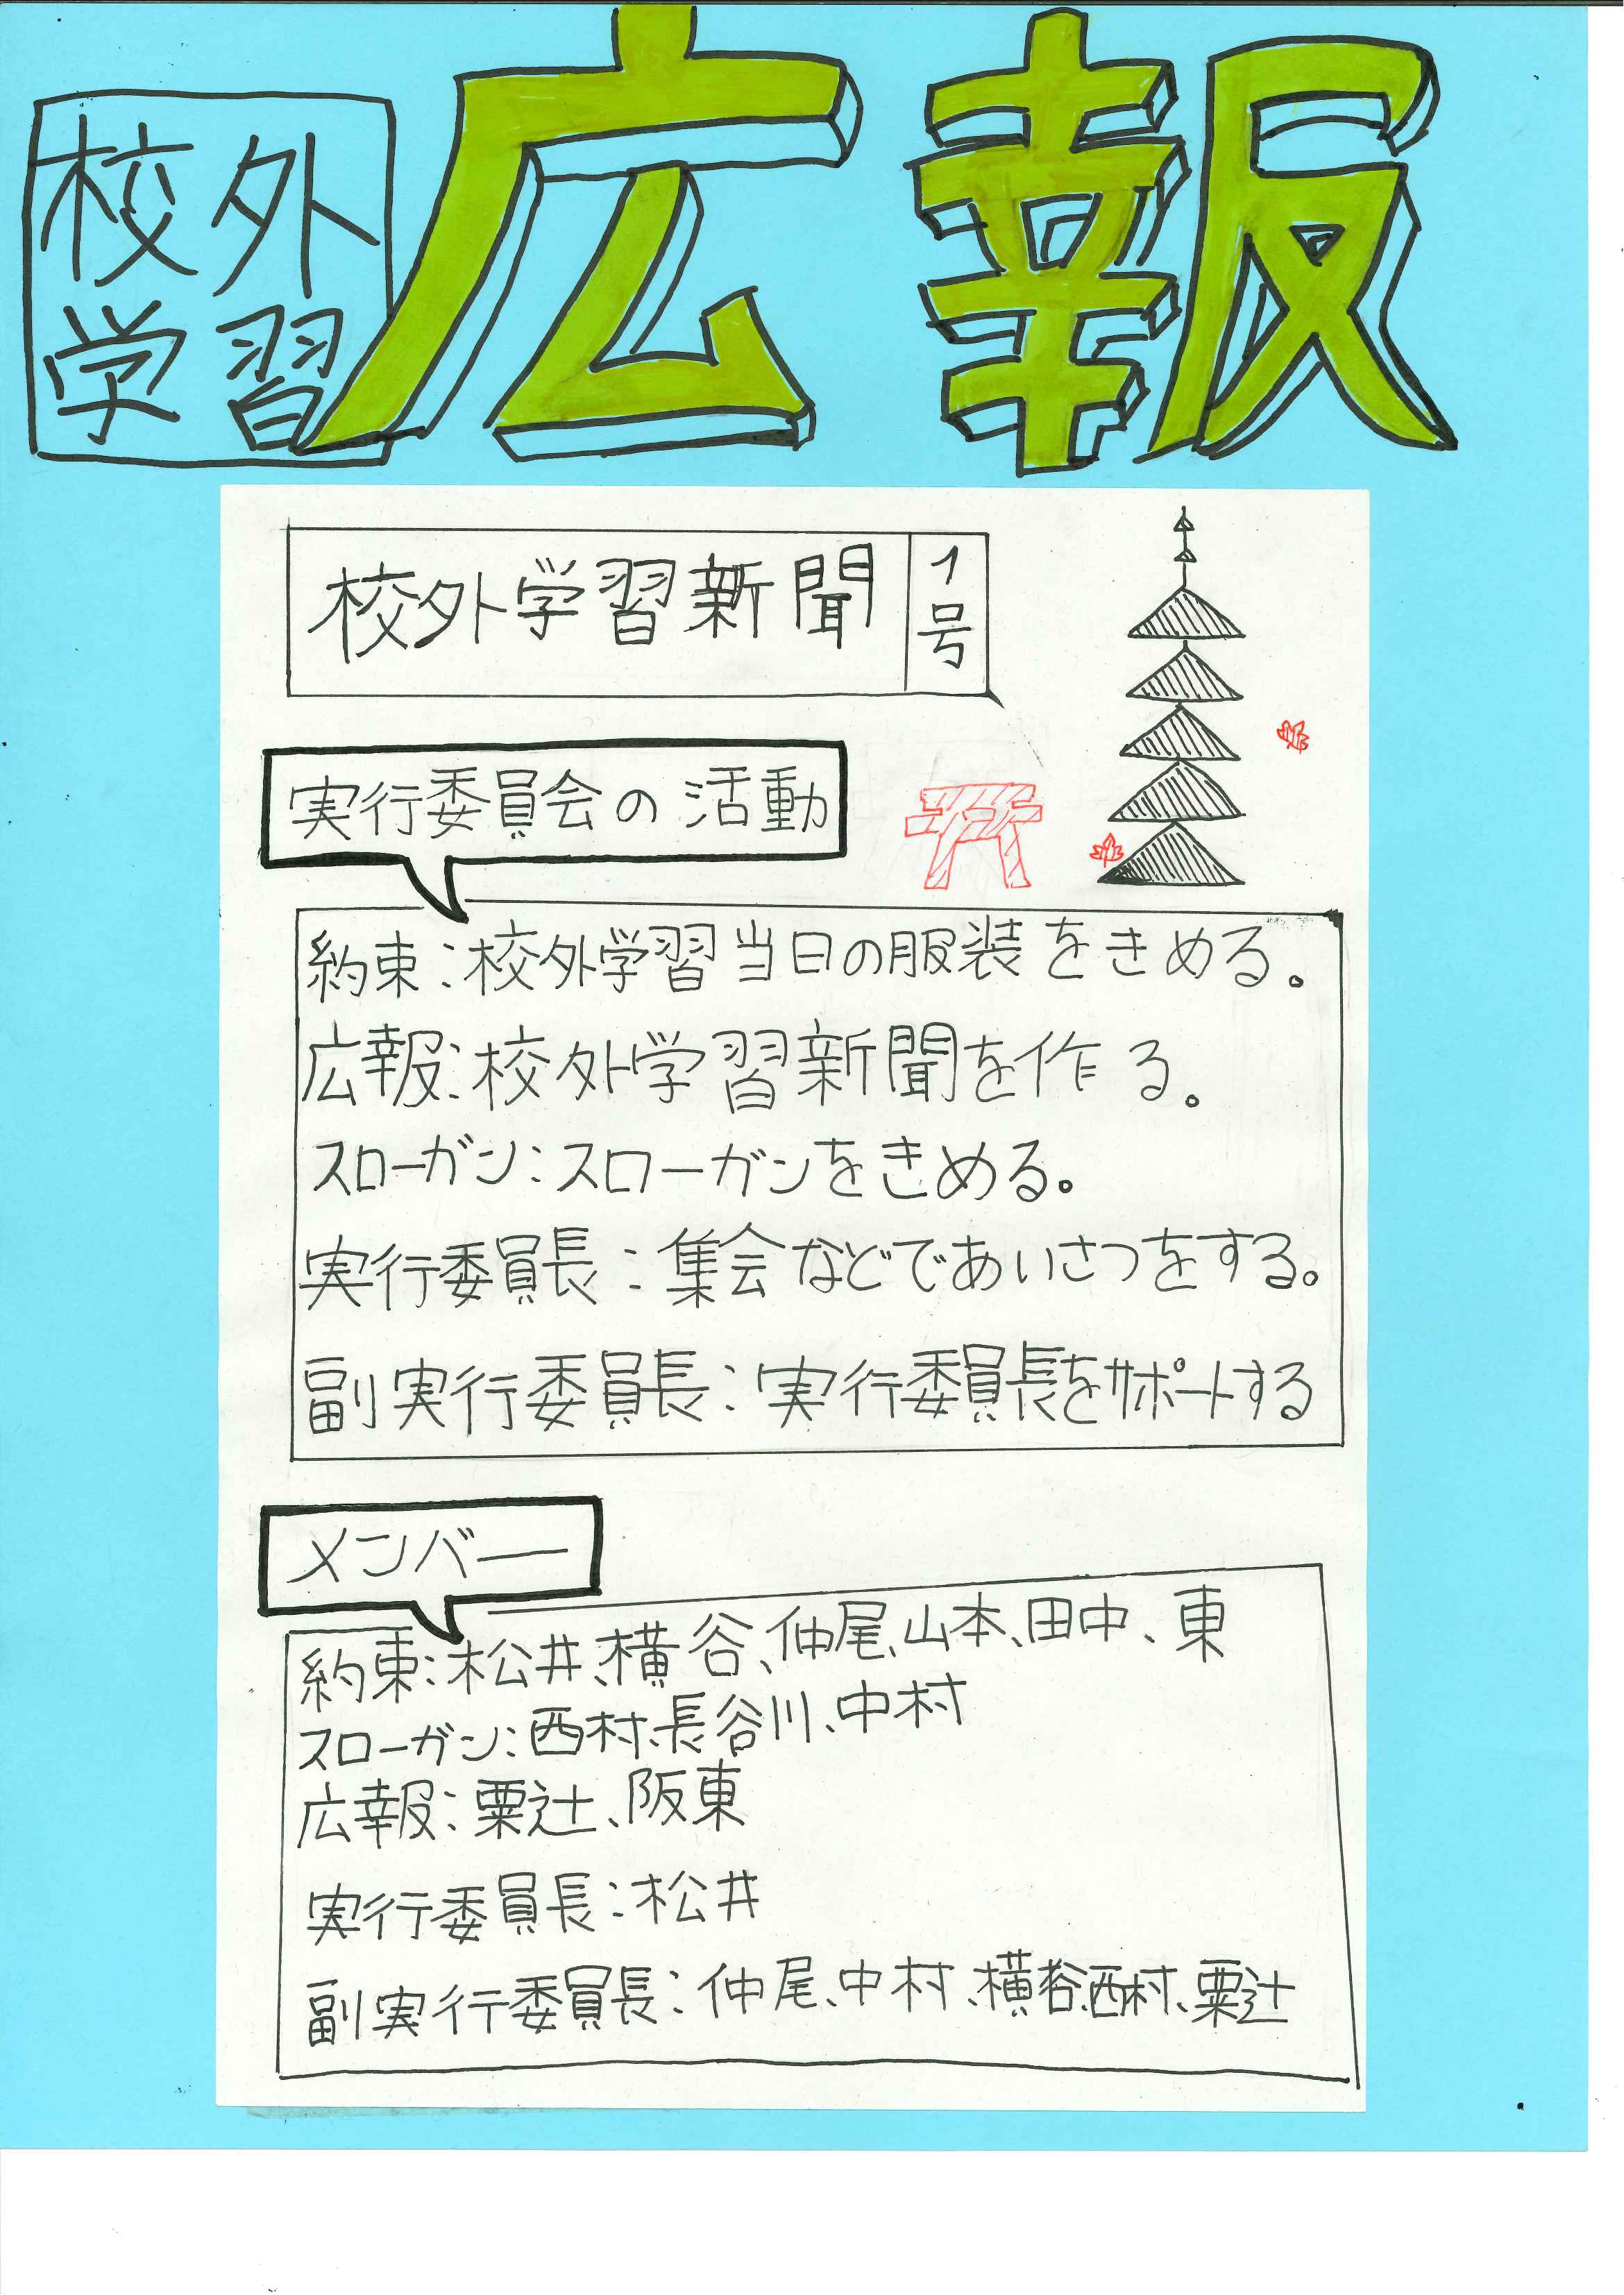 校外
学習
広報
校外学習新聞
1号
実行委員会の活動
約束:校外学習当日の服装をきめる。
広報:校外学習新聞を作る。
スローガン:スローガンをきめる。
実行委員長:集会などであいさつをする。
副実行委員長:実行委員長をサポートする
メンバー
約束:松井、横谷、仲尾、山本、田中、東
スローガン:西村、長谷川、中村
広報:粟辻、阪東
実行委員長:松井
副実行委員長:仲尾、中村、横谷、西村、粟辻